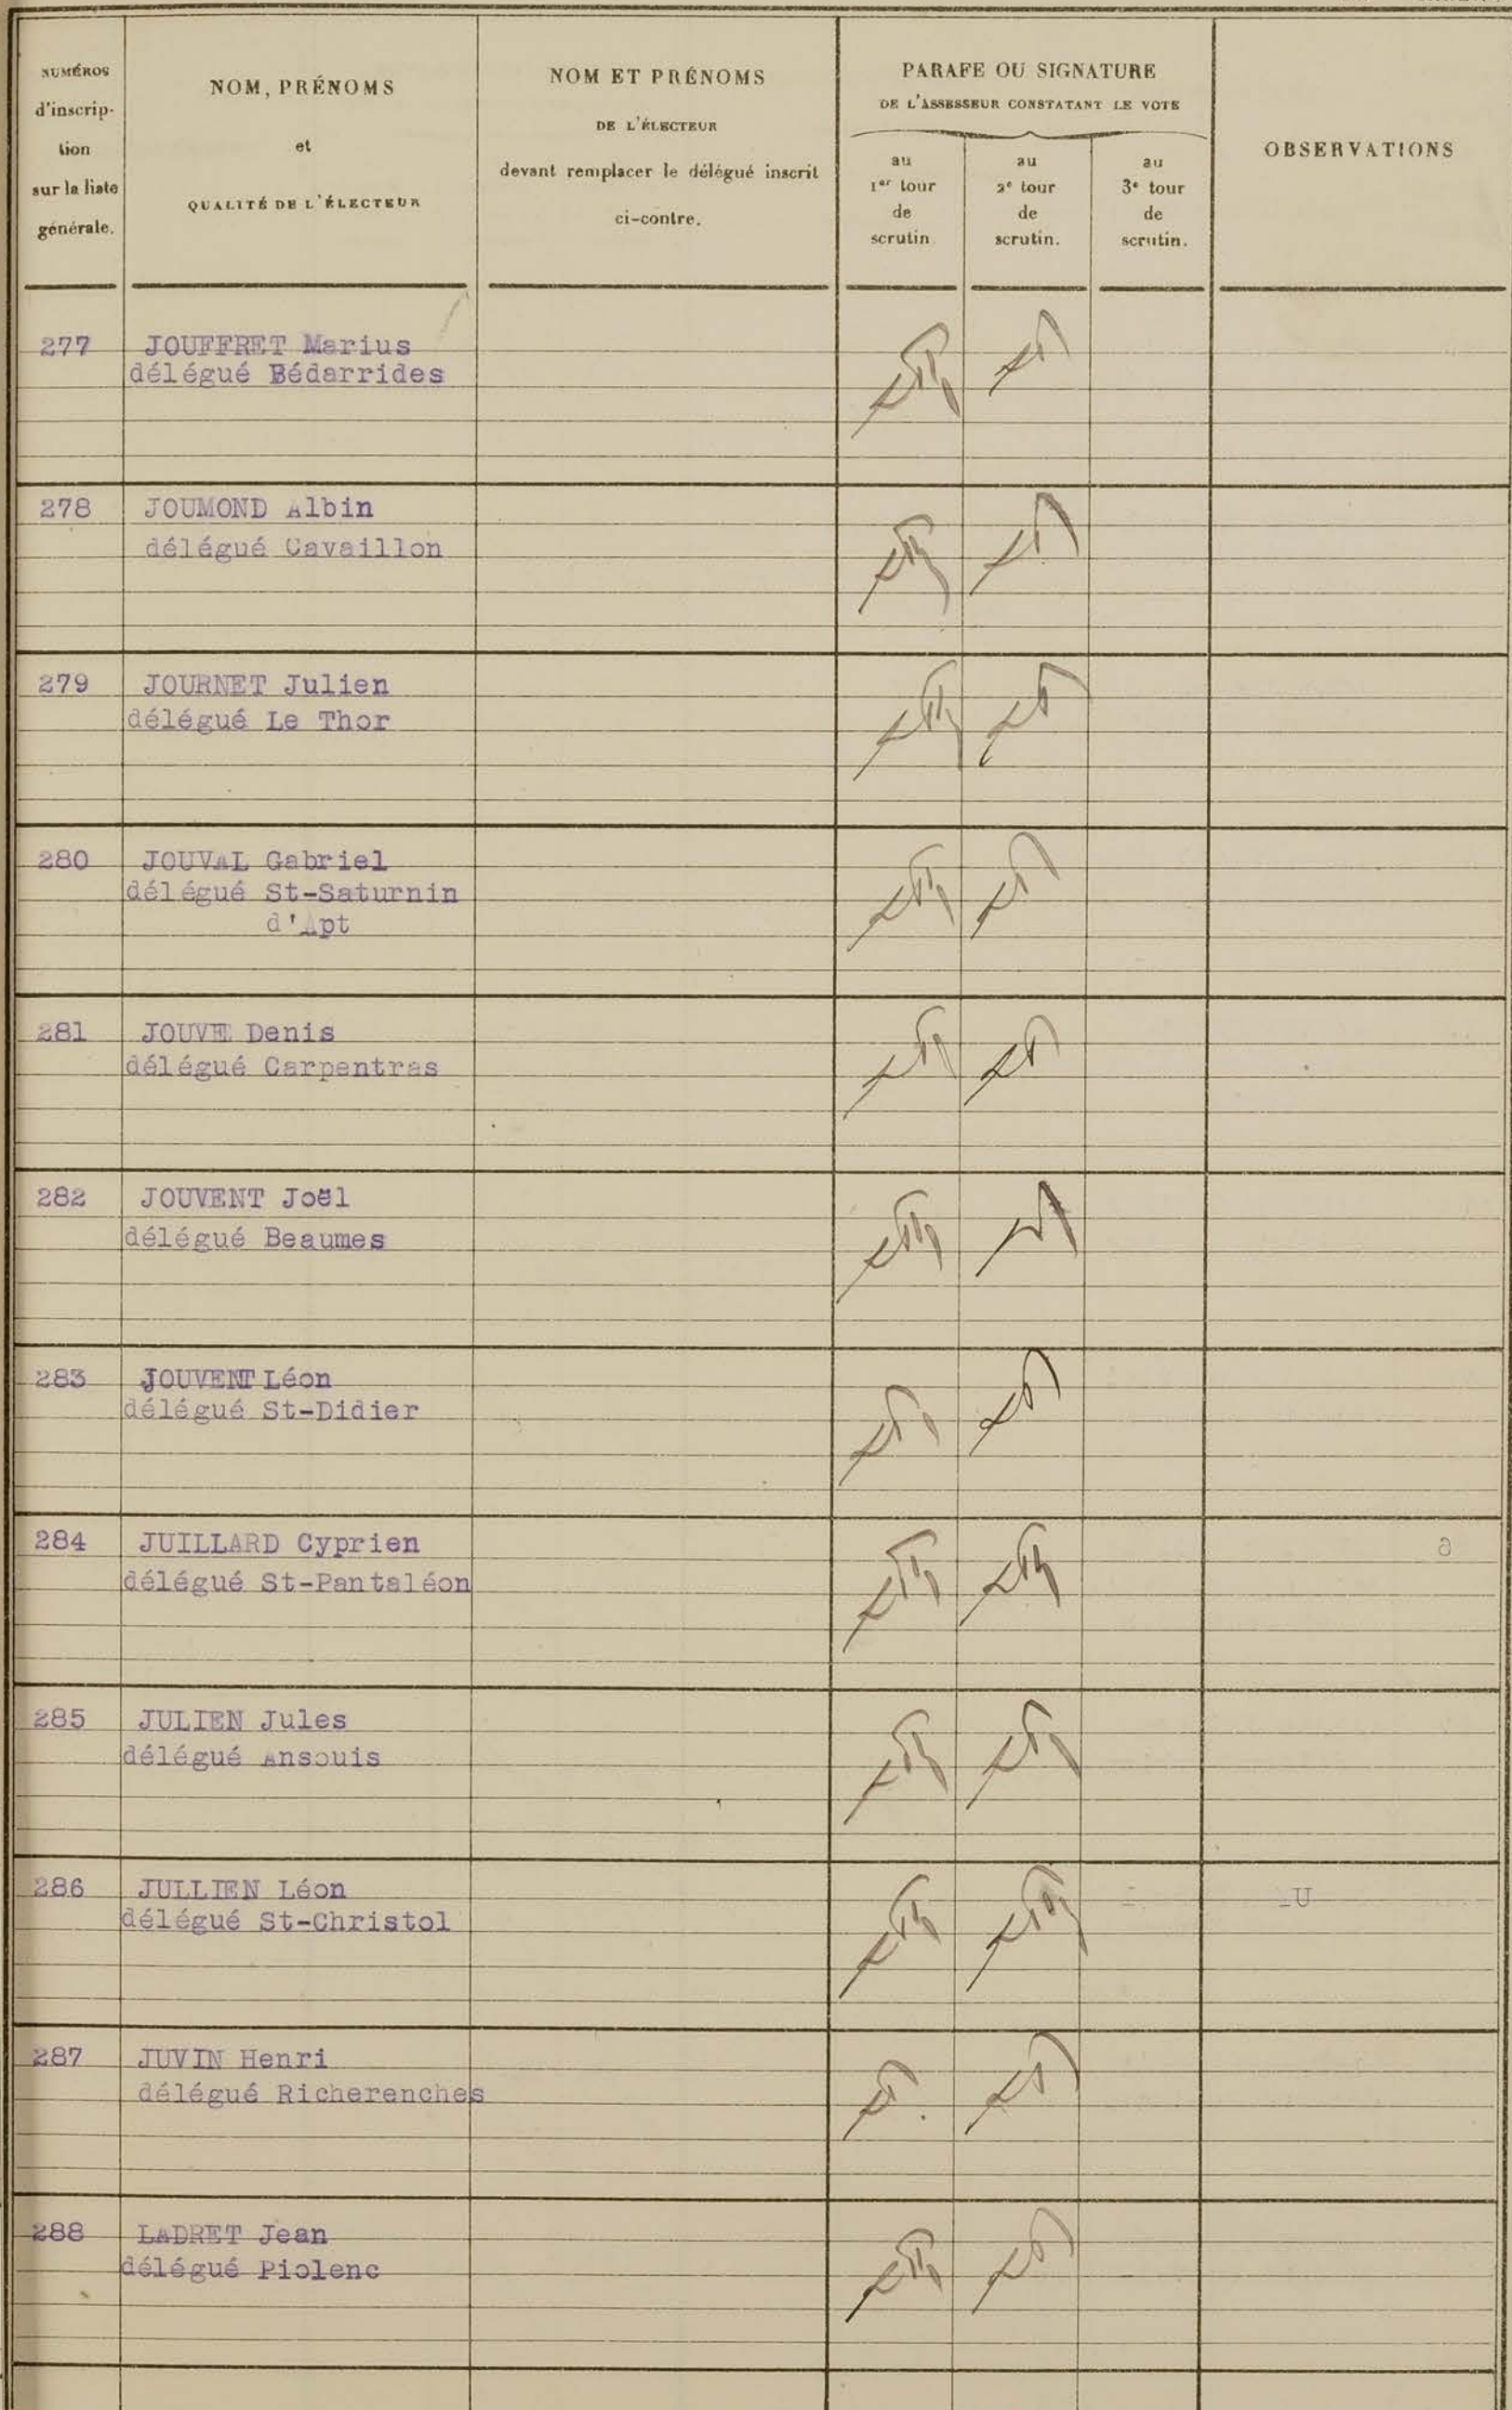 NUMÉROS
d'inscrip-
tion
sur la liste
générale.
NOM, PRÉNOMS
et
QUALITÉ DE L'ÉLECTEUR
NOM ET PRÉNOMS
DE L'ÉLECTEUR
devant remplacer le délégué inscrit
ci-contre.
PARAFE OU SIGNATURE
DE L'ASSESSEUR CONSTATANT LE VOTE
au
1er tour
de
scrutin
au
2e tour
de
scrutin.
au
3e tour
de
scrutin.
OBSERVATIONS
277 JOUFFRET Marius
délégué Bédarrides
278 JOUMOND Albin
délégué Cavaillon
279 JOURNET Julien
délégué Le Thor
280 JOUVAL Gabriel
délégué St-Saturnin
d'Apt
281 JOUVE Denis
délégué Carpentras
282 JOUVENT Joël
délégué Beaumes
283 JOUVENT Léon
délégué St-Didier
284 JUILLARD Cyprien
délégué St-Pantaléon
285 JULIEN Jules
délégué Ansouis
286 JULLIEN Léon
délégué St-Christol
287 JUVIN Henri
délégué Richerenches
288 LADRET Jean
délégué Piolenc